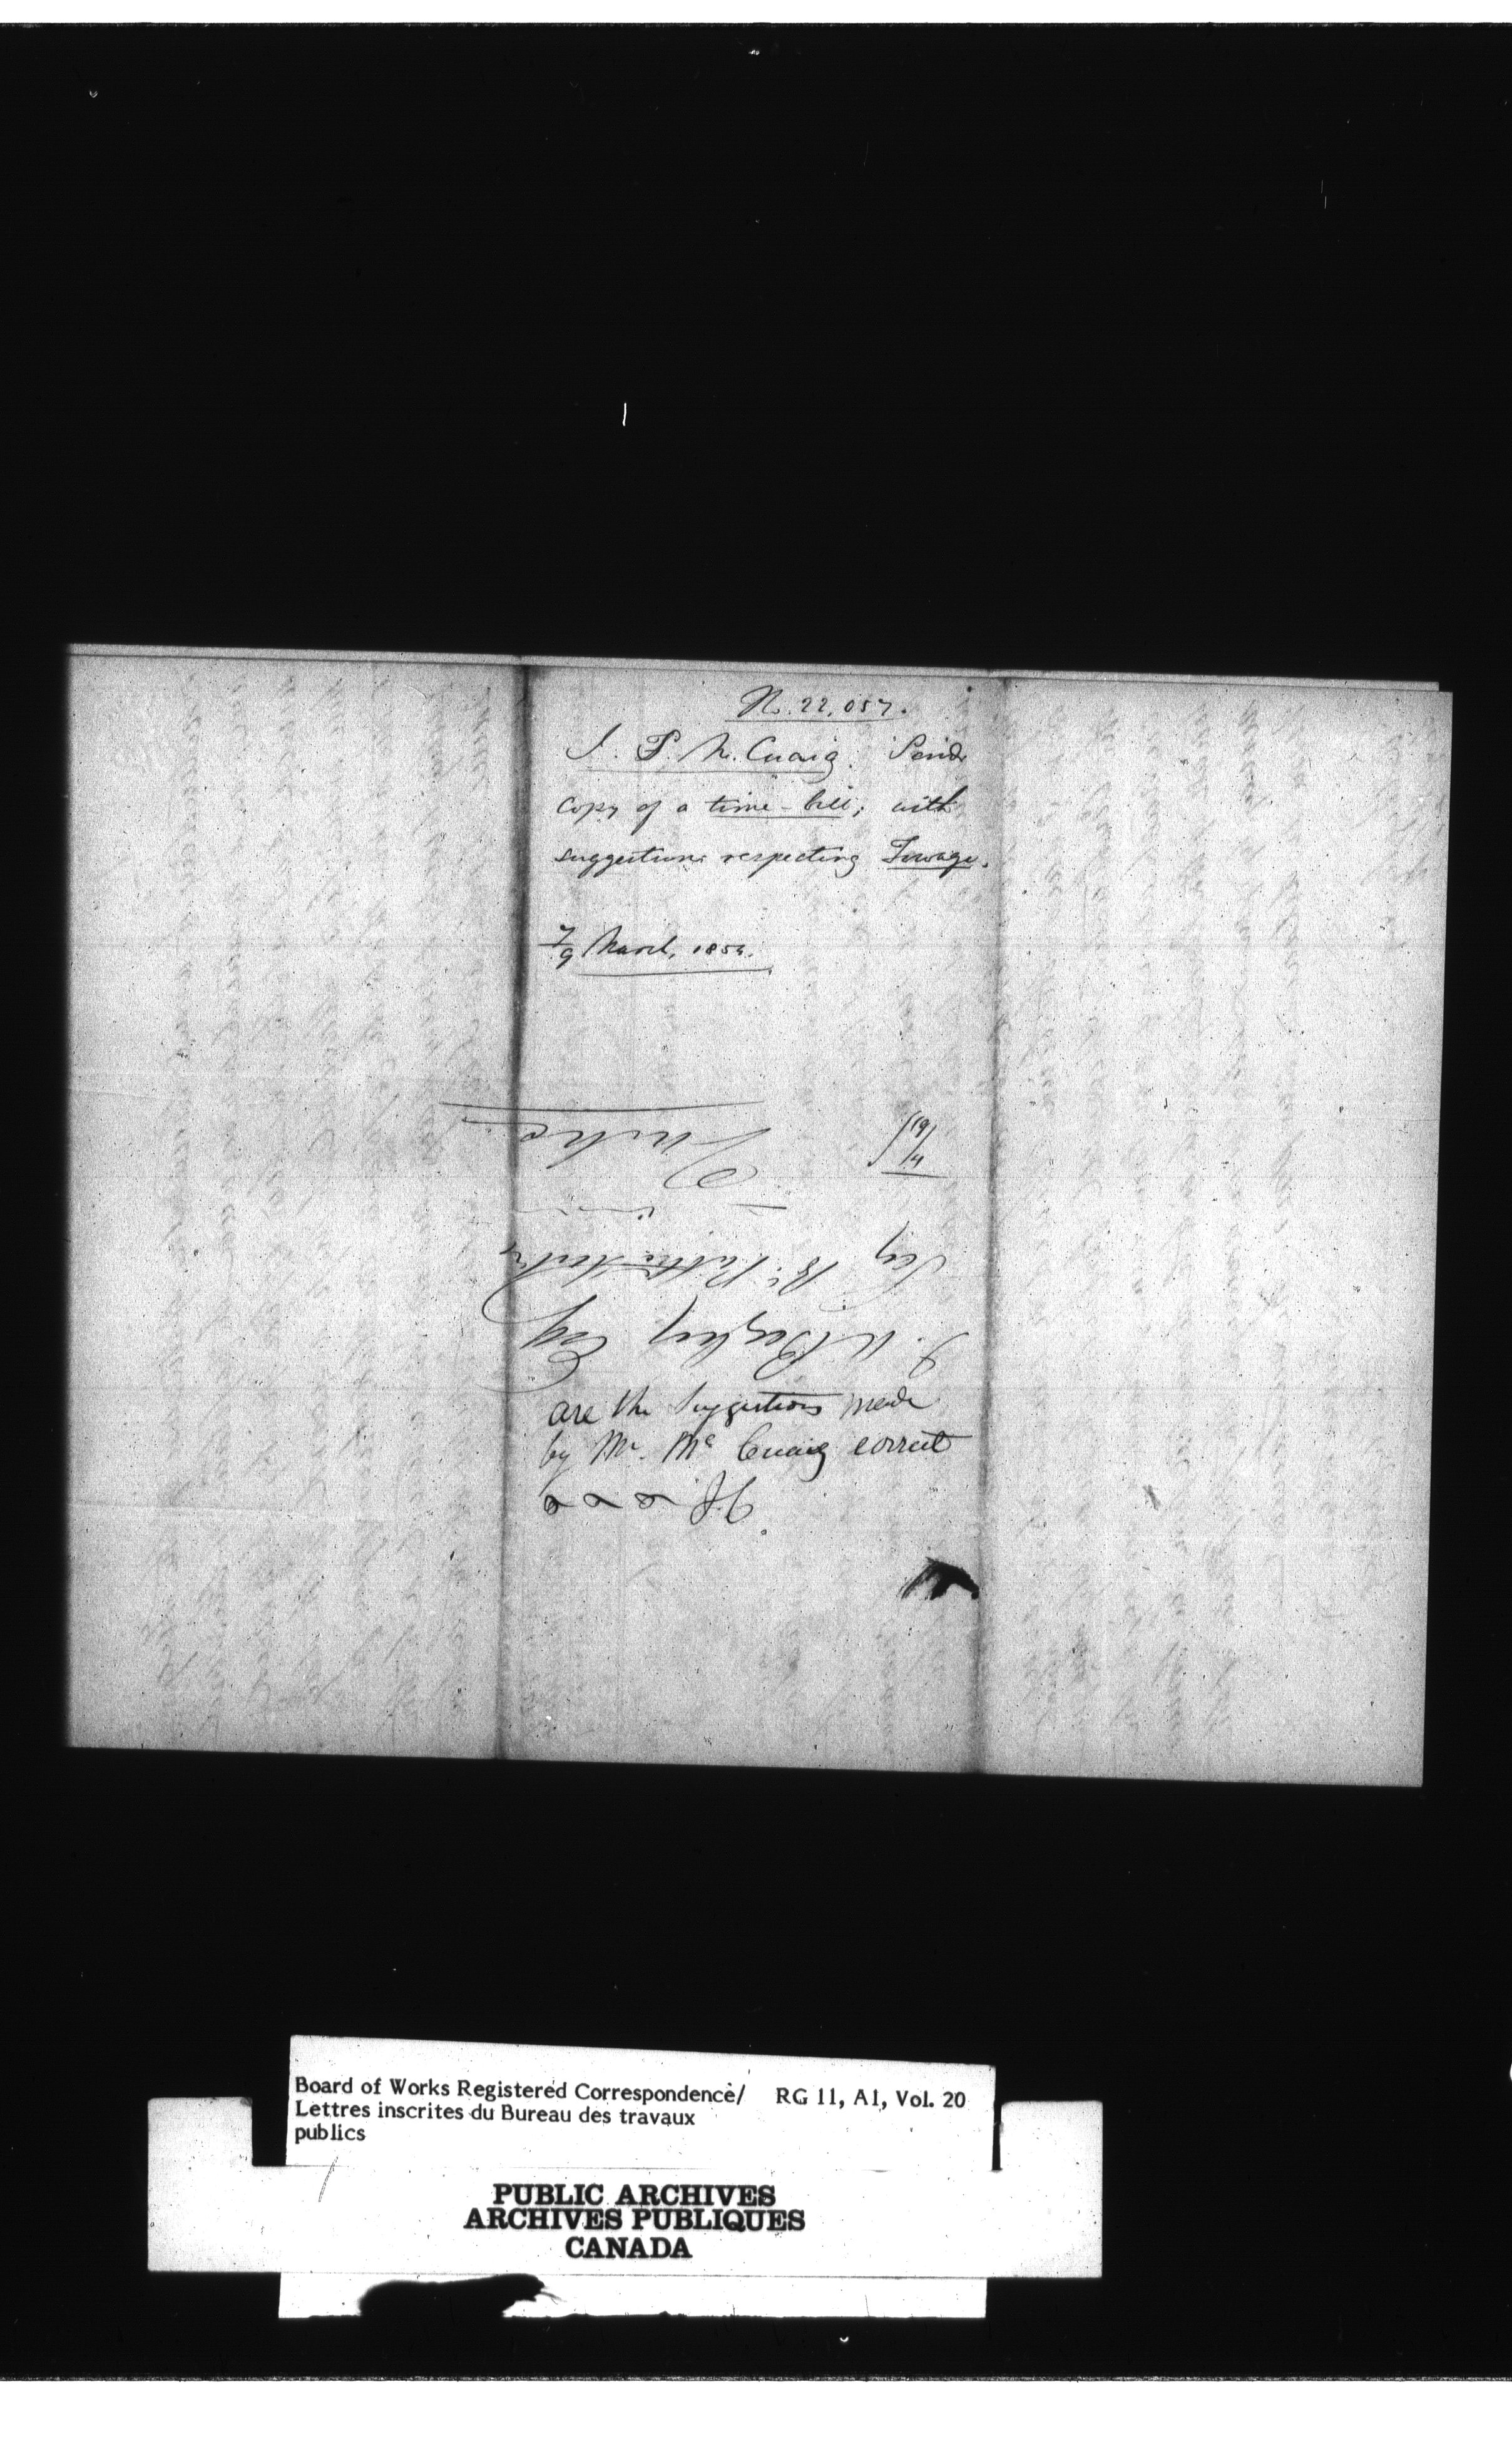 N. 22,057.
J. P. Mc.Cuaig. Sends
copy of a time-bill; with
suggestions respecting Towage.
7/9 March, 1854.
19/4
Quebec
Secy Bd. Public Works
T. A. Begly Esq
are the Suggestions made
by Mr. Mc Cuaig correct
J.C.
Board of Works Registered Correspondence/ RG 11, A1, Vol. 20
Lettres inscrites du Bureau des travaux
publics
PUBLIC ARCHIVES
ARCHIVES PUBLIQUES
CANADA